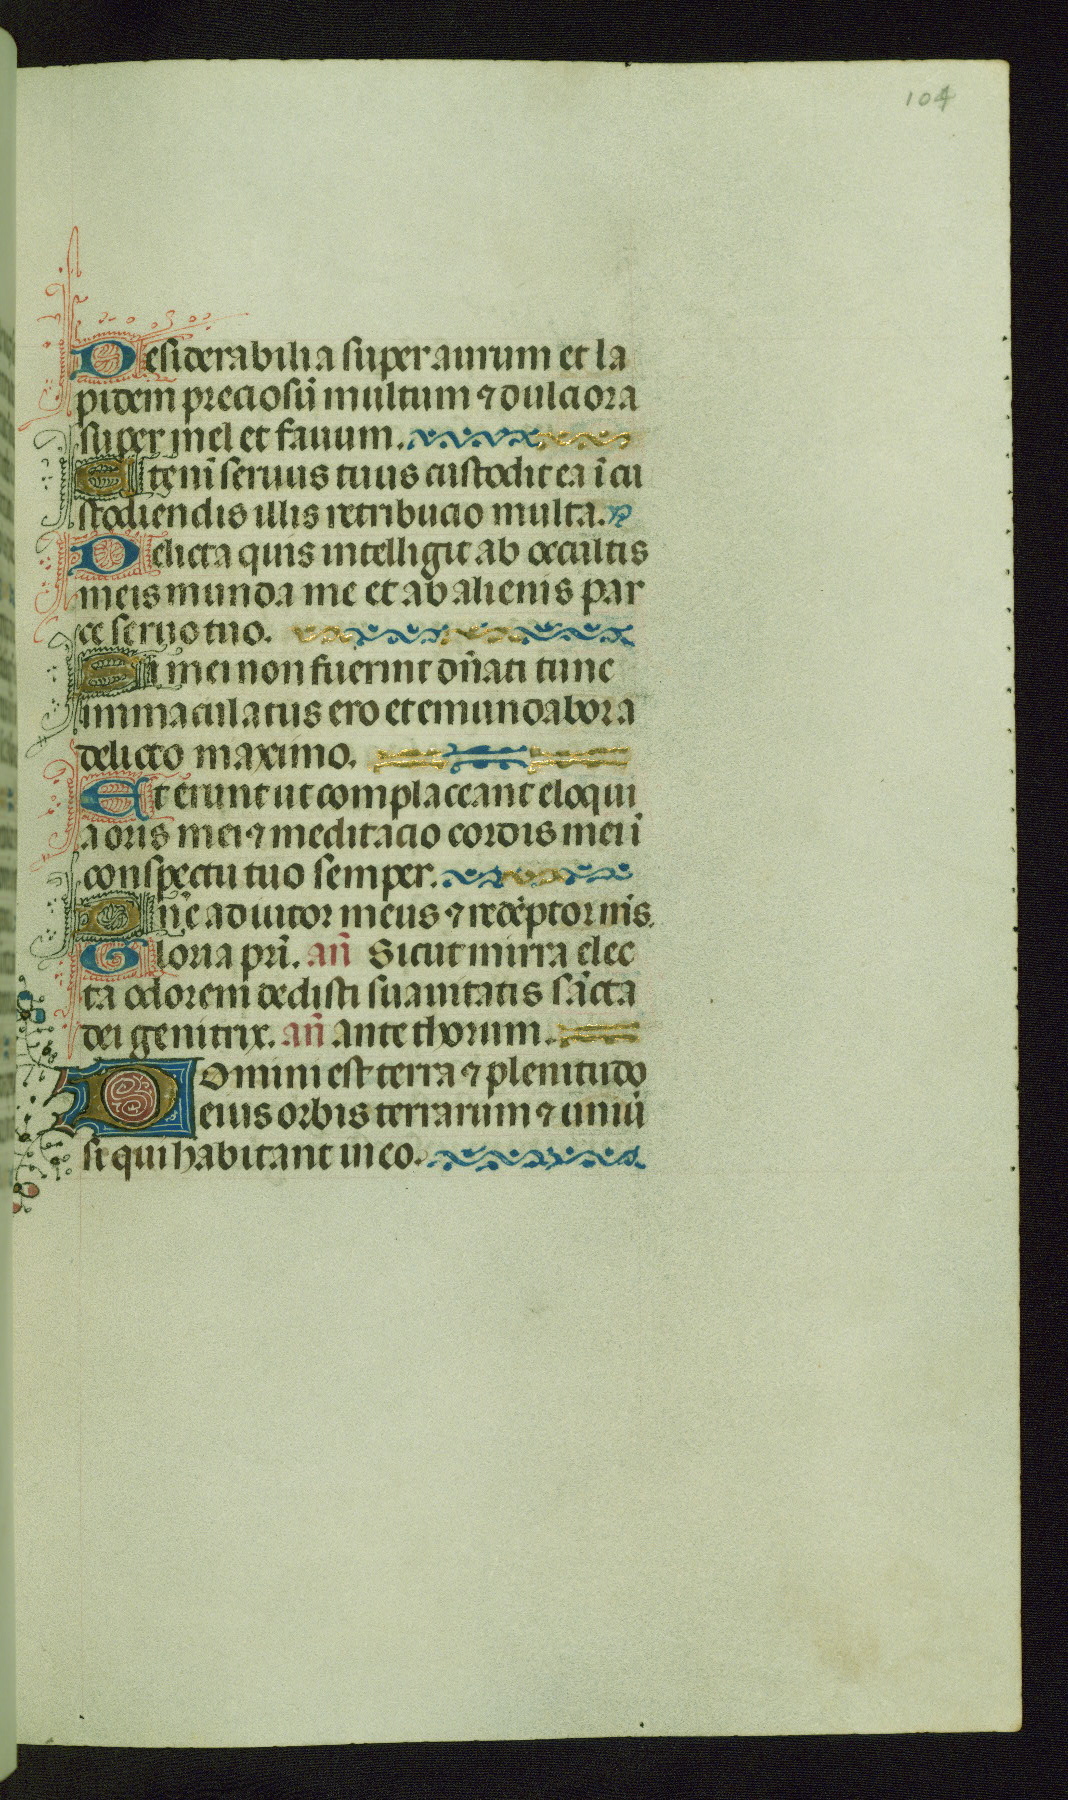 104
Desiderabilia super aurum et la
pidem preciosū multum ⁊ dulciora
super mel et fauum.
Eteni̅ seruus tuus custodit ea i̅ cu
stodiendis illis retribucio multa.
Delicta quis intelligit ab occultis
meis munda me et ab alienis par
ce seruo tuo.
Si mei non fuerint dn̄ati tunc
immaculatus ero et emundabor a
delicto maximo.
Et erunt ut complaceant eloqui
a oris mei ⁊ meditacio cordis mei i̅
conspectu tuo semper.
Dn̄e adiutor meus ⁊ redēptor m̄s.
Gloria pr̄i. an̄ Sicut mirra elec
ta odorem dedisti suauitatis sācta
dei genitrix. an̄ ante thorum.
Domini est terra ⁊ plenitudo
eius orbis terrarum ⁊ uniū
si qui habitant in eo.